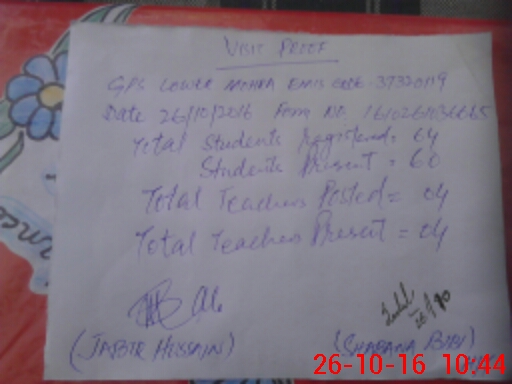 VISIT PROOF
GPS LOWER EMIS CODE 37320119
Date 26/10/2016 Form No. 1610261036665
Total Students Registered = 64
Students Present = 60
Total Teachers Posted = 04
Total Teachers Present = 04
(JABIR HUSSAIN)
(SHABANA BIBI)
26-10-16 10:44